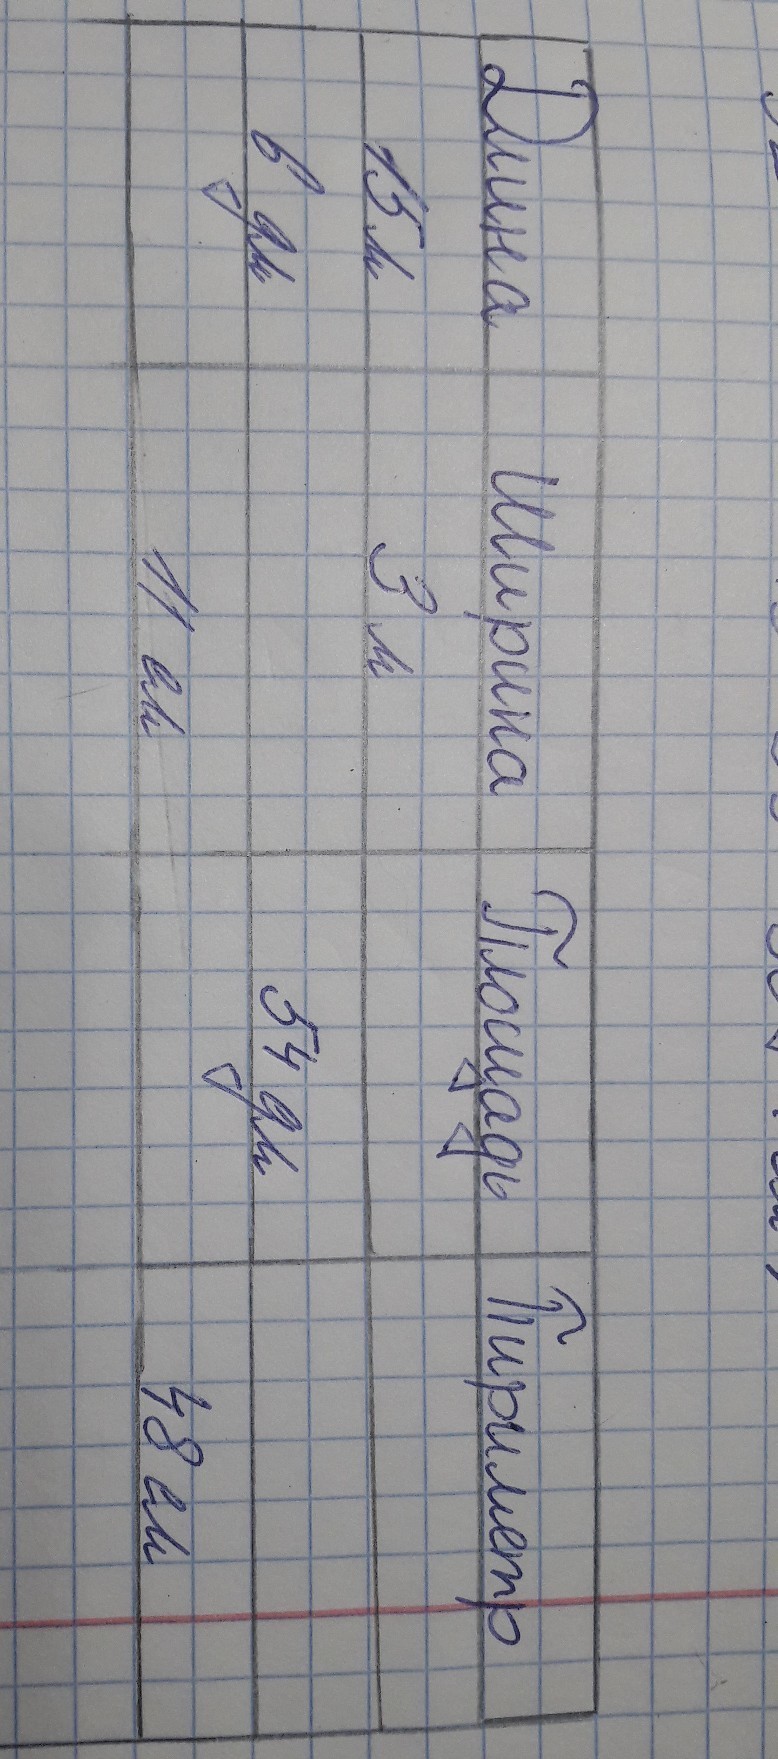 Длина Ширина Площадь Пириметр
15 м 3 м
6 дм 54 дм
11 см 48 см